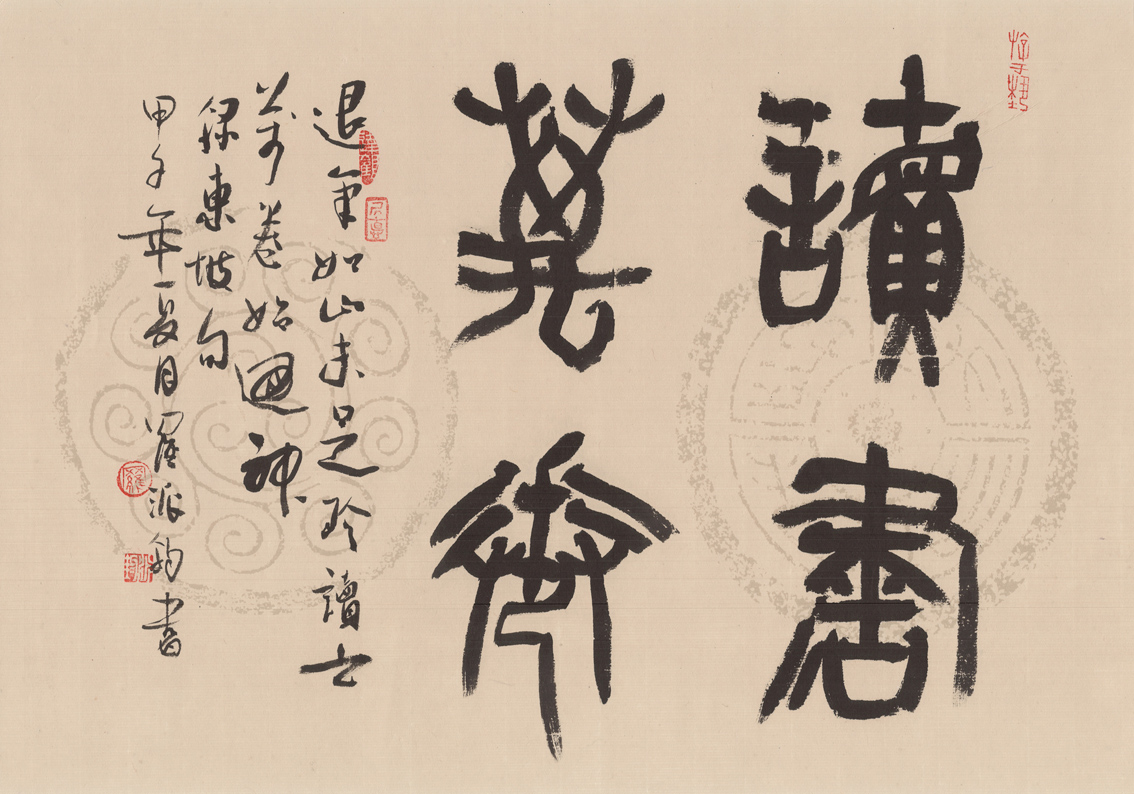 讀書
萬卷
退筆如山未足珍讀書
萬卷始通神
錄東坡句
甲子年夏月羅派鈞書